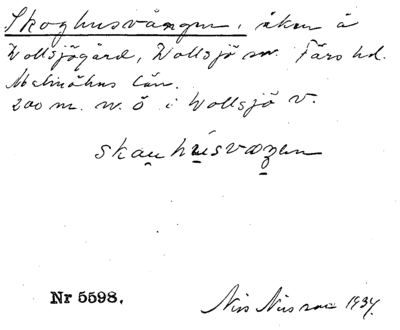 Skoghusvången, åker å
Vollsjögård, Vollsjö sn. Färs hd.
Malmöhus län.
200 m. n. ö i Vollsjö v.
skauhúsvaŋen
Nr 5598.
Nils Nilsson 1934.